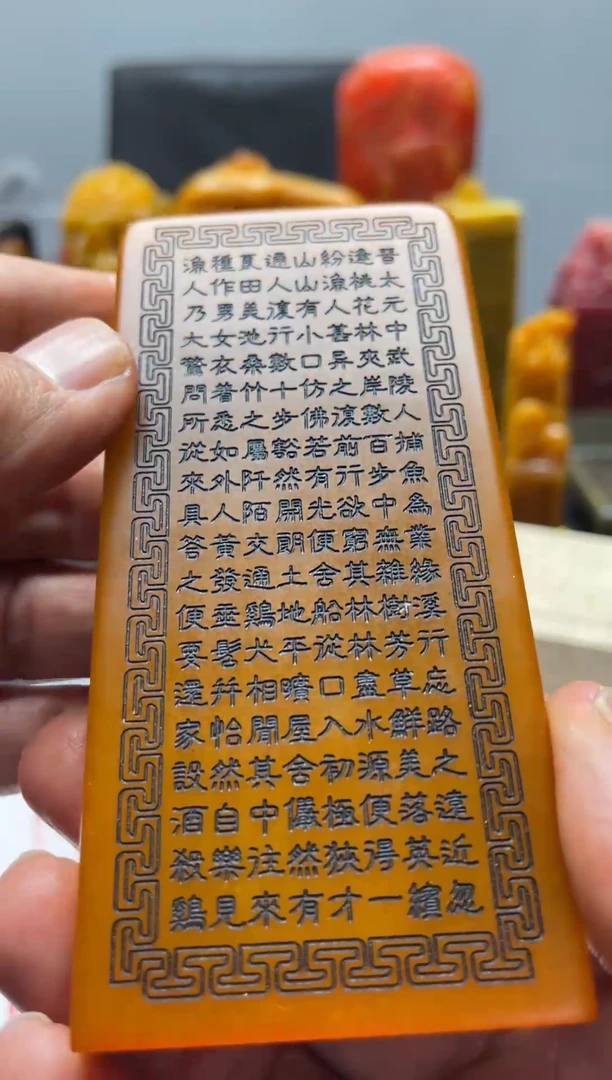 晉太元中武陵人捕魚為業緣溪行忘路之遠近忽
逢桃花林夾岸數百步中無雜樹芳草鮮美落英繽
紛漁人甚異之復前行欲窮其林林盡水源便得一
山山有小口仿佛若有光便舍船從口入初極狹才
通人復行數十步豁然開朗土地平曠屋舍儼然有
良田美池桑竹之屬阡陌交通鷄犬相聞其中往來
種作男女衣著悉如外人黃發垂髫并怡然自樂見
漁人乃大驚問所從來具答之便要還家設酒殺鷄